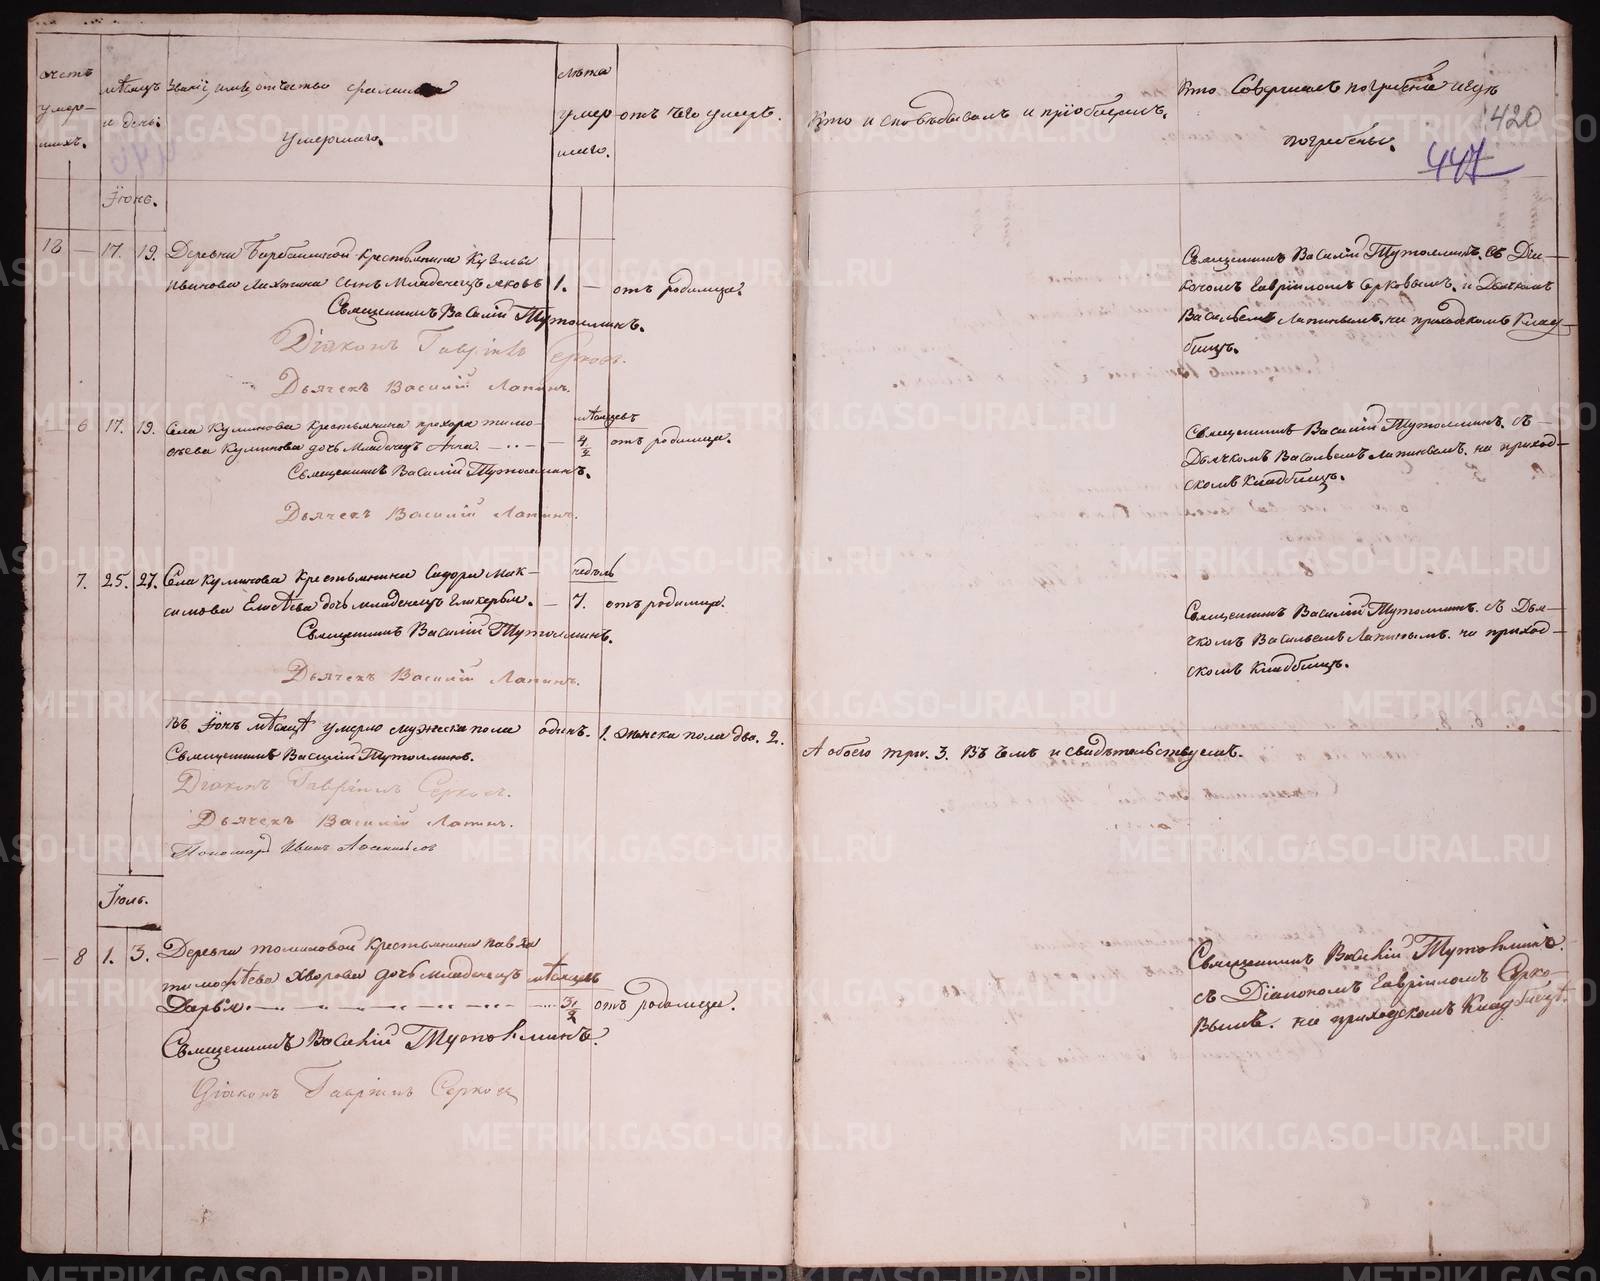 счетъ умер- шихъ.
мѣсяцъ и день.
Званіе, имя, отчество фамилія
умершаго.
лѣта умер- шаго.
отъ чего умеръ.
Кто исповѣдывалъ и пріобщалъ.
Кто Совершалъ погребеніе и гдѣ
погребены.
420
447
Іюнь.
12 — 17. 19. Деревни крестьянина Кузьмы
Иванова сынъ младенецъ Яковъ 1. — отъ родимца.
Священникъ Василій Тутолминъ.
Діаконъ Гавріилъ Серковъ.
Дьячекъ Василій Лапинъ.
Священникъ Василій Тутолминъ. съ Діа-
кономъ Гавріиломъ Серковымъ. и Дьячкомъ
Васильемъ Лапинымъ. на приходскомъ Клад-
бищѣ.
6 17. 19. Села Куликова крестьянина прохора тимо-
ѳеева Куликова дочь младенецъ Анна. мѣсяцевъ 4/2 отъ родимца.
Священникъ Василій Тутолминъ.
Дьячекъ Василій Лапинъ.
Священникъ Василій Тутолминъ. съ
Дьячкомъ Васильемъ Лапинымъ. на приход-
скомъ Кладбищѣ.
7. 25. 27. Села Куликова крестьянина Сидора Мак-
симова Елисѣева дочь младенецъ Гликерья. — недѣль 7. отъ родимца.
Священникъ Василій Тутолминъ.
Дьячекъ Василій Лапинъ.
Священникъ Василій Тутолминъ. съ Дья-
чкомъ Васильемъ Лапинымъ. на приход-
скомъ Кладбищѣ.
Въ Іюнѣ мѣсяцѣ умерло мужеска пола одинъ. 1. женска пола два. 2.
А обоего три. 3. Въ чемъ и свидѣтельствуемъ.
Священникъ Василій Тутолминъ.
Діаконъ Гавріилъ Серковъ.
Дьячекъ Василій Лапинъ.
Пономарь Иванъ
Іюль.
— 8 1. 3. Деревни крестьянина павла
тимоѳѣева Хворова дочь младенецъ мѣсяцевъ
Дарья. 3 1/2 отъ родимца.
Священникъ Василій Тутолминъ.
Діаконъ Гавріилъ Серковъ
Священникъ Василій Тутолминъ.
съ Діакономъ Гавріиломъ Серко-
вымъ. на приходскомъ Кладбищѣ.
METRIKI.GASO-URAL.RU